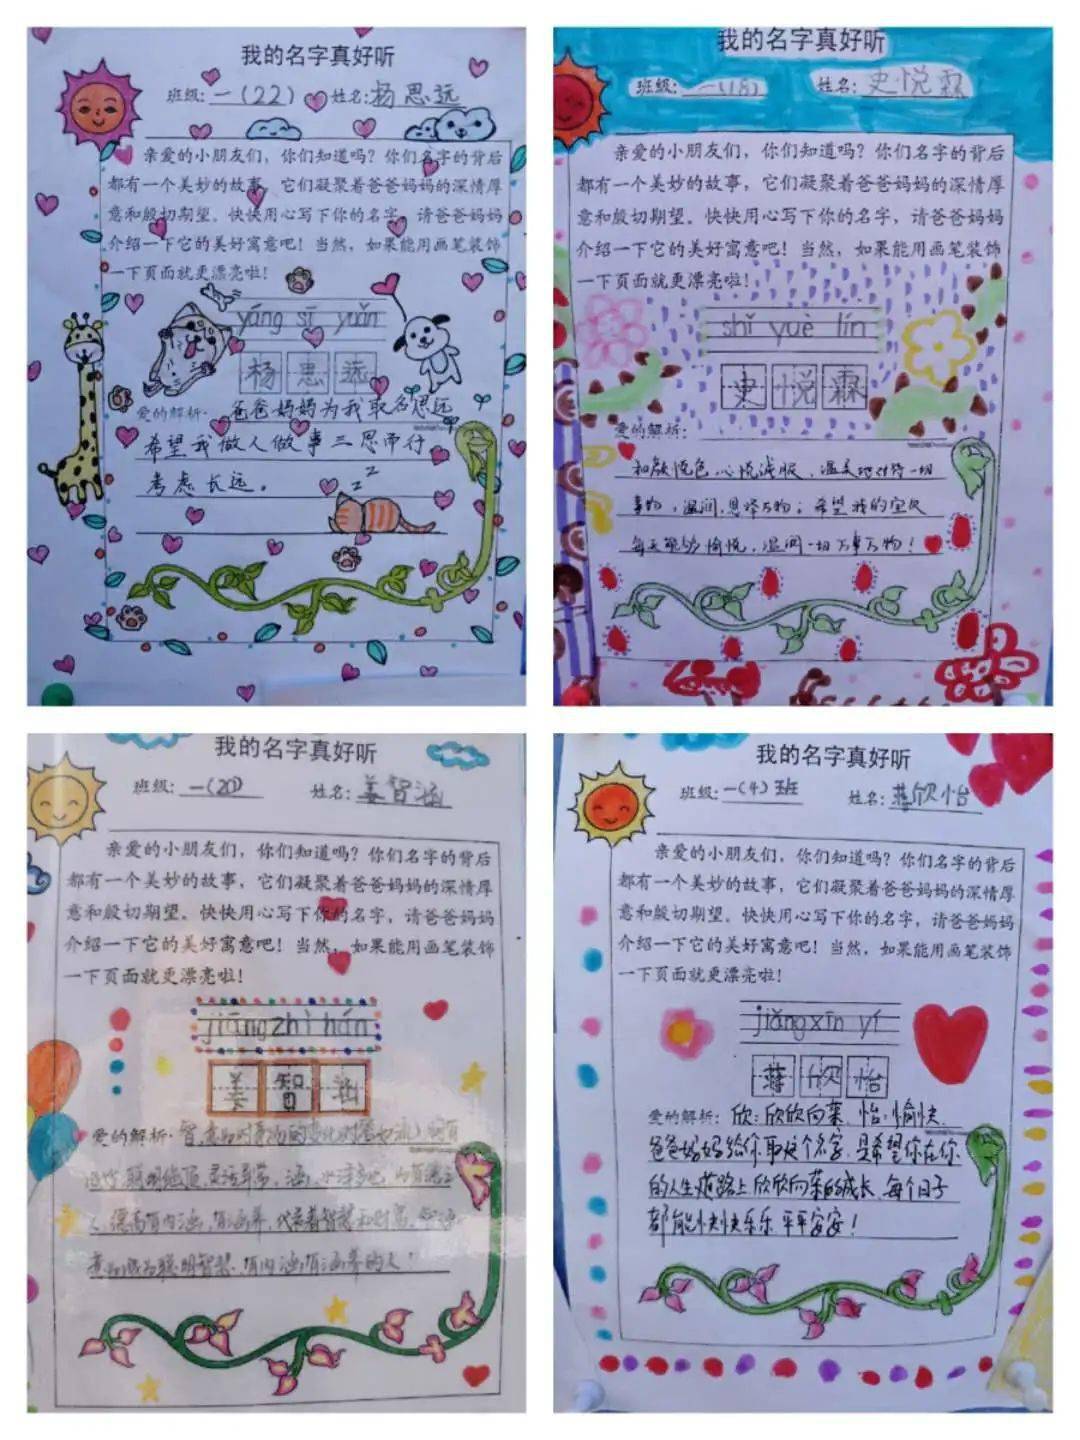 我的名字真好听
班级:一(22) 姓名:杨思远
亲爱的小朋友们，你们知道吗？你们名字的背后
都有一个美妙的故事，它们凝聚着爸爸妈妈的深情厚
意和殷切期望。快快用心写下你的名字，请爸爸妈妈
介绍一下它的美好寓意吧！当然，如果能用画笔装饰
一下页面就更漂亮啦！
yáng sī yuǎn
杨思远
爱的解析: 爸爸妈妈为我取名思远
希望我做人做事三思而行
考虑长远。
我的名字真好听
班级:一(18) 姓名:史悦霖
亲爱的小朋友们，你们知道吗？你们名字的背后
都有一个美妙的故事，它们凝聚着爸爸妈妈的深情厚
意和殷切期望。快快用心写下你的名字，请爸爸妈妈
介绍一下它的美好寓意吧！当然，如果能用画笔装饰
一下页面就更漂亮啦！
shǐ yuè lín
史悦霖
爱的解析:
和颜悦色,心悦诚服,温柔地对待一切
事物,温润,恩泽万物;希望我的宝贝
每天能够愉悦,温润一切万事万物!
我的名字真好听
班级:一(20) 姓名:姜智涵
亲爱的小朋友们，你们知道吗？你们名字的背后
都有一个美妙的故事，它们凝聚着爸爸妈妈的深情厚
意和殷切期望。快快用心写下你的名字，请爸爸妈妈
介绍一下它的美好寓意吧！当然，如果能用画笔装饰
一下页面就更漂亮啦！
jiāng zhì hán
姜智涵
爱的解析: 智,意即对事物的变化
聪明绝顶,灵活异常,涵,
有内涵,有涵养,代表着智慧和
意即成为聪明智慧,有内涵,有涵养的人!
我的名字真好听
班级:一(4)班 姓名:蒋欣怡
亲爱的小朋友们，你们知道吗？你们名字的背后
都有一个美妙的故事，它们凝聚着爸爸妈妈的深情厚
意和殷切期望。快快用心写下你的名字，请爸爸妈妈
介绍一下它的美好寓意吧！当然，如果能用画笔装饰
一下页面就更漂亮啦！
jiǎng xīn yí
蒋欣怡
爱的解析: 欣:欣欣向荣,怡:愉快
爸爸妈妈给你取这个名字,是希望你在你
的人生道路上欣欣向荣的成长,每个日子
都能快快乐乐,平平安安!